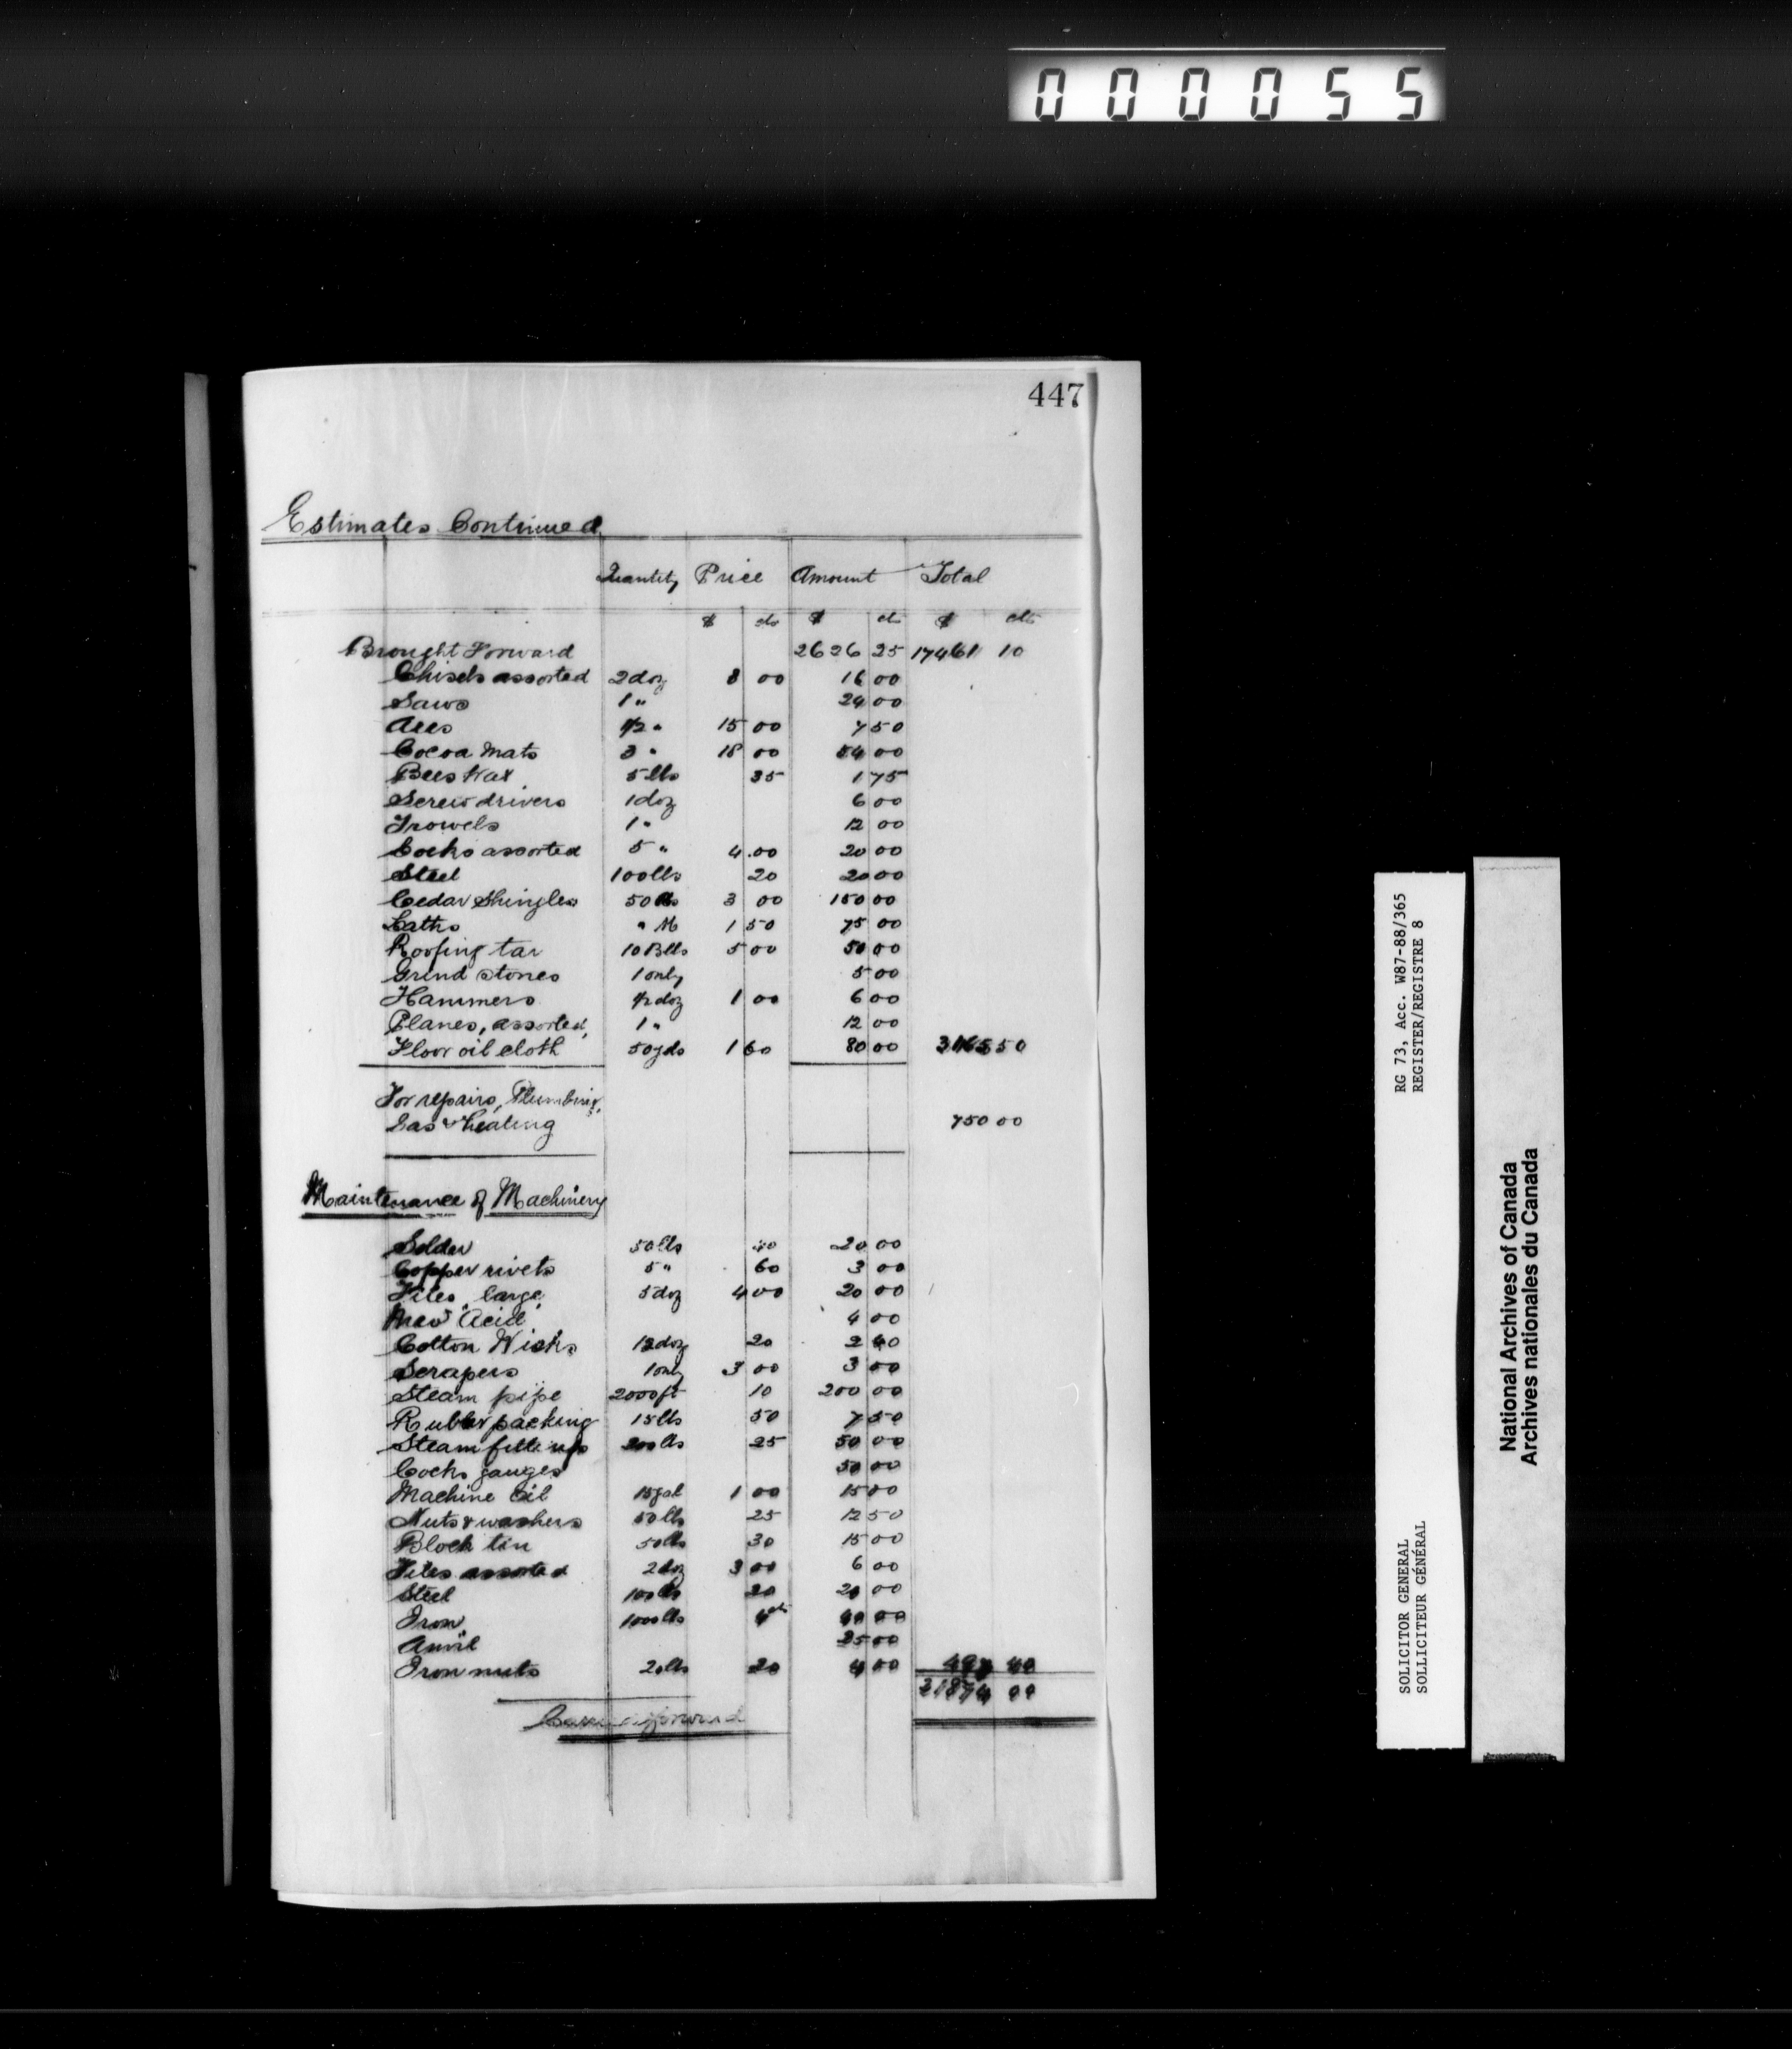 000055
447
Estimates Continued
Quantity Price Amount Total
$ cts $ cts $ cts
Brought Forward 2626 25 17461 10
Chisels assorted 2 doz 8 00 16 00
Saws 1 " 24 00
Axes 1/2 " 15 00 7 50
Cocoa Mats 3 " 18 00 54 00
Bees Wax 5 lbs 35 1 75
Screw drivers 1 doz 6 00
Trowels 1 " 12 00
Cocks assorted 5 " 4.00 20 00
Steel 100 lbs 20 20 00
Cedar Shingles 50 3 00 150 00
Laths " M 1 50 75 00
Roofing tar 10 Blls 5 00 50 00
Grind stones 1 only 5 00
Hammers 1/2 doz 1 00 6 00
Planes, assorted, 1 " 12 00
Floor oil cloth 50 yds 1 60 80 00 3165 50
For repairs, Plumbing,
Gas & heating 750 00
Maintenance of Machinery
Solder 50 lbs 40 20 00
Copper rivets 5 " 60 3 00
Files, large, 5 doz 4 00 20 00
Acid 4 00
Cotton Wicks 12 doz 20 2 40
Scrapers 1 only 3 00 3 00
Steam pipe 2000 ft 10 200 00
Rubber packing 15 lbs 50 7 50
Steam fittings 200 lbs 25 50 00
Cocks gauges 50 00
Machine Oil 15 gal 1 00 15 00
Nuts & washers 50 lbs 25 12 50
Block tin 50 lbs 30 15 00
Files assorted 2 doz 3 00 6 00
Steel 100 lbs 20 20 00
Iron 1000 lbs 4 cts 40 00
Anvil 25 00
Iron nuts 20 lbs 20 4 00 497 40
21874 00
Carried forward
RG 73, Acc. W87-88/365
REGISTER/REGISTRE 8
SOLICITOR GENERAL
SOLLICITEUR GÉNÉRAL
National Archives of Canada
Archives nationales du Canada